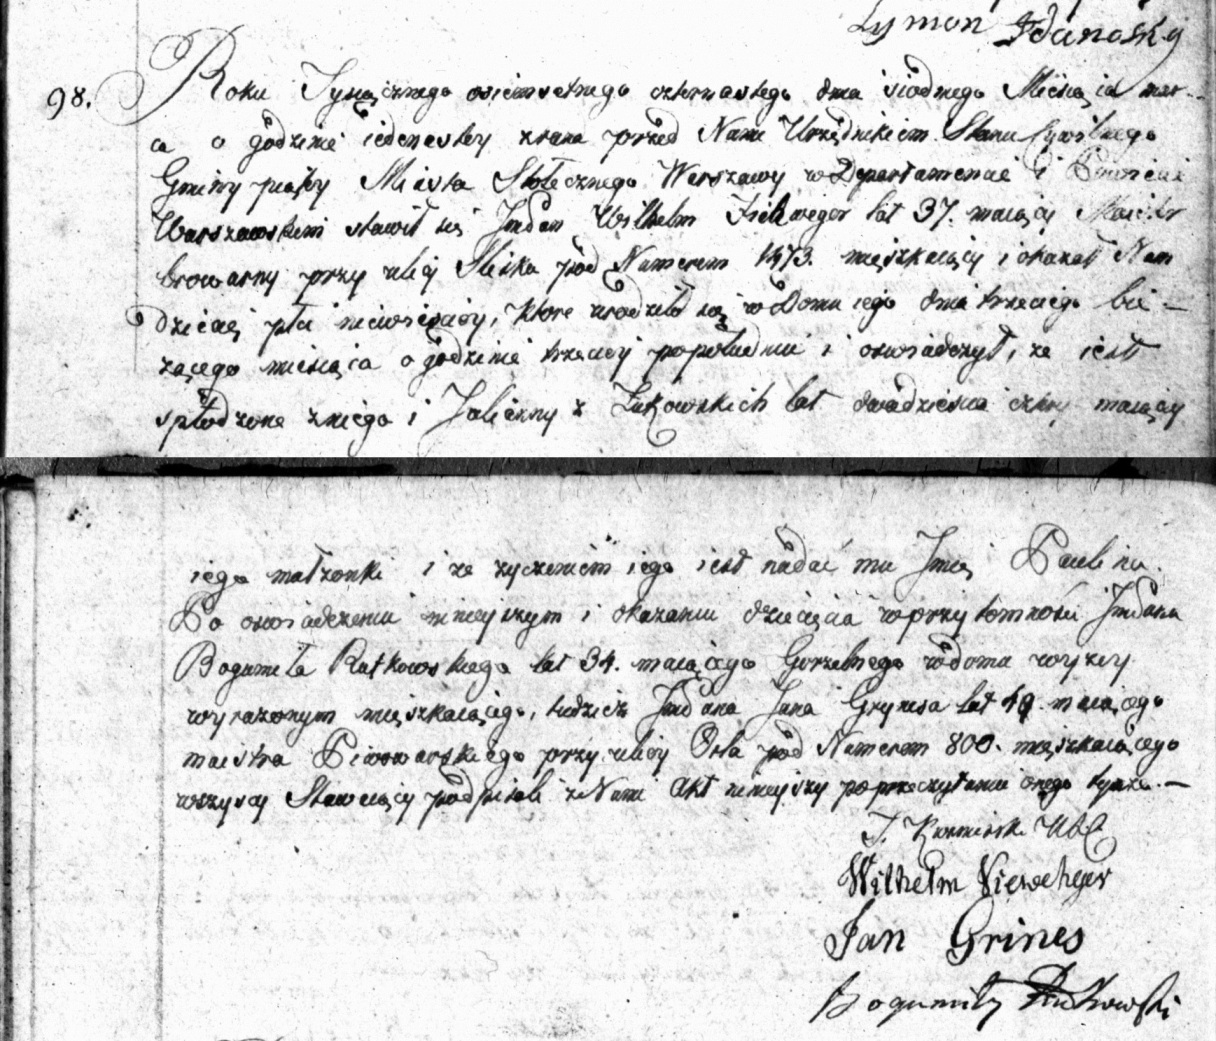 Szymon Zdanoski
98. Roku Tysiącznego osiemsetnego czternastego dnia siódmego Miesiąca mar-
ca o godzinie iedenastey zrana przed Nami Urzędnikiem Stanu Cywilnego
Gminy piątey Miasta Stołecznego Warszawy w Departamencie i Powiecie
Warszawskim stawił się Jmć Pan Wilhelm lat 37. maiący Maister
browarny przy ulicy Śliska pod Numerem 1473. mięszkaiący i okazał Nam
dziecię płci niewieściey, które urodziło się w Domu iego dnia trzeciego bie-
żącego miesiąca o godzinie trzeciey popołudniu i oswiadczył, że iest
spłodzone z niego i Julianny z Żukowskich lat dwadzieścia cztery maiący
iego małżonki i że życzeniem iego iest nadać mu Imię Paulina.
Po oswiadczeniu ninieyszym i okazaniu dziecięcia w przytomności Jmć Pana
Bogumiła Rutkowskiego lat 34. maiącego Gorzelnego w domu wyżey
wyrażonym mięszkaiącego, tudzież Jmć Pana Jana Grynesa lat 49. maiącego
maistra Piwowarskiego przy ulicy Orla pod Numerem 800. mięszkaiącego
wszyscy Stawaiący podpisali z Nami Akt ninieyszy po przeczytaniu onego tymże.—
Wilhelm Vieweheger
Jan Grines
Bogumiły Rutkowski